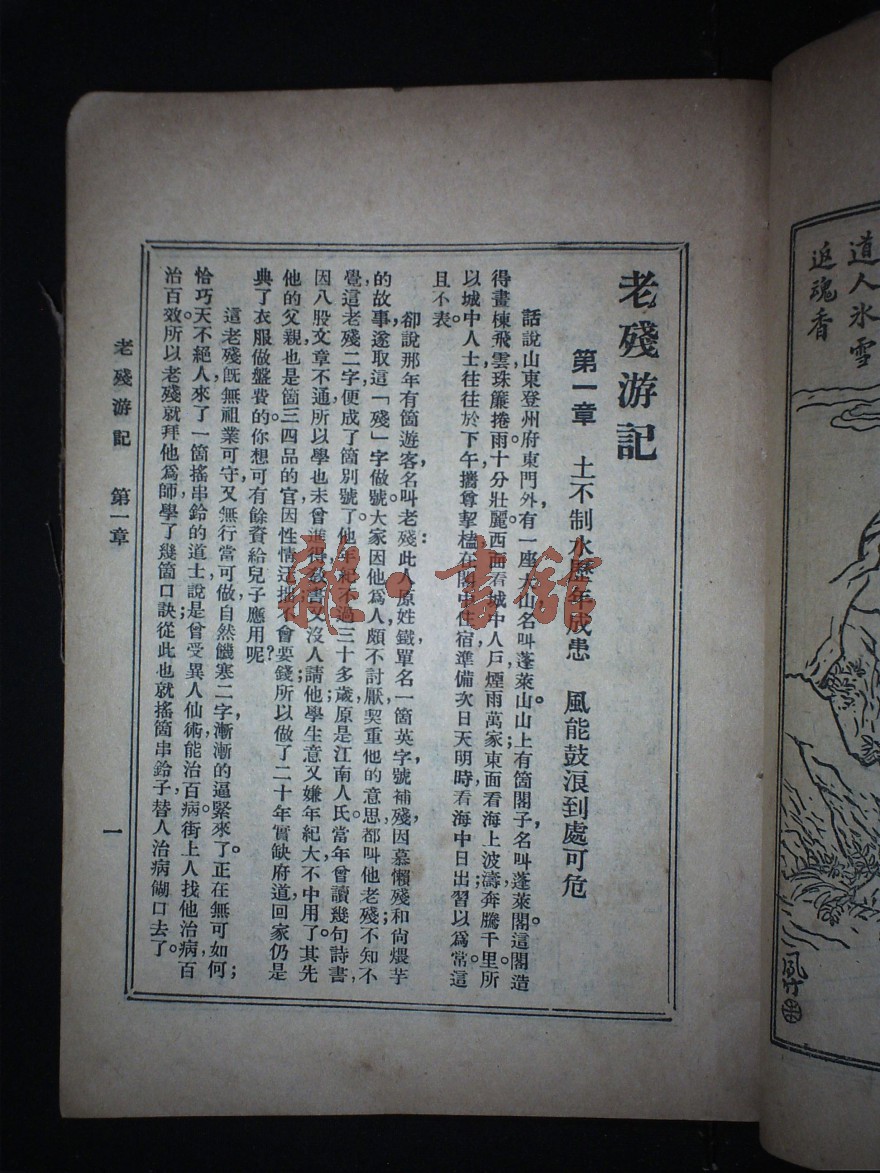 老殘游記
第一章　土不制水歷年成患　風能鼓浪到處可危
話說山東登州府東門外,有一座大山,名叫蓬萊山。山上有箇閣子,名叫蓬萊閣。這閣造
得畫棟飛雲,珠簾捲雨,十分壯麗。西面看城中人戶,煙雨萬家;東面看海上波濤,奔騰千里。所
以城中人士往往於下午攜尊挈榼,在閣中住宿,準備次日天明時看海中日出,習以爲常。這
且不表。
卻說那年有箇遊客,名叫老殘。此人原姓鐵,單名一箇英字,號補殘;因慕懶殘和尙煨芋
的故事,遂取這「殘」字做號。大家因他爲人頗不討厭,契重他的意思,都叫他老殘。不知不
覺,這老殘二字便成了箇別號了。他年紀不過三十多歲,原是江南人氏。當年曾讀幾句詩書,
因八股文章不通,所以學也未曾進得,敎書又沒人請他,學生意又嫌年紀大,不中用了。其先
他的父親也是箇三四品的官,因性情迂拙,不會要錢,所以做了二十年實缺,府道回家仍是
典了衣服做盤費的。你想可有餘資給兒子應用呢?
這老殘旣無祖業可守,又無行當可做,自然饑寒二字漸漸的逼緊來了。正在無可如何;
恰巧天不絕人,來了一箇搖串鈴的道士,說是曾受異人仙術,能治百病。街上人找他治病,百
治百效。所以老殘就拜他爲師,學了幾箇口訣;從此也就搖箇串鈴子,替人治病餬口去了。
老殘游記　第一章　一
道人氷雪
返魂香
風竹
雜·書館